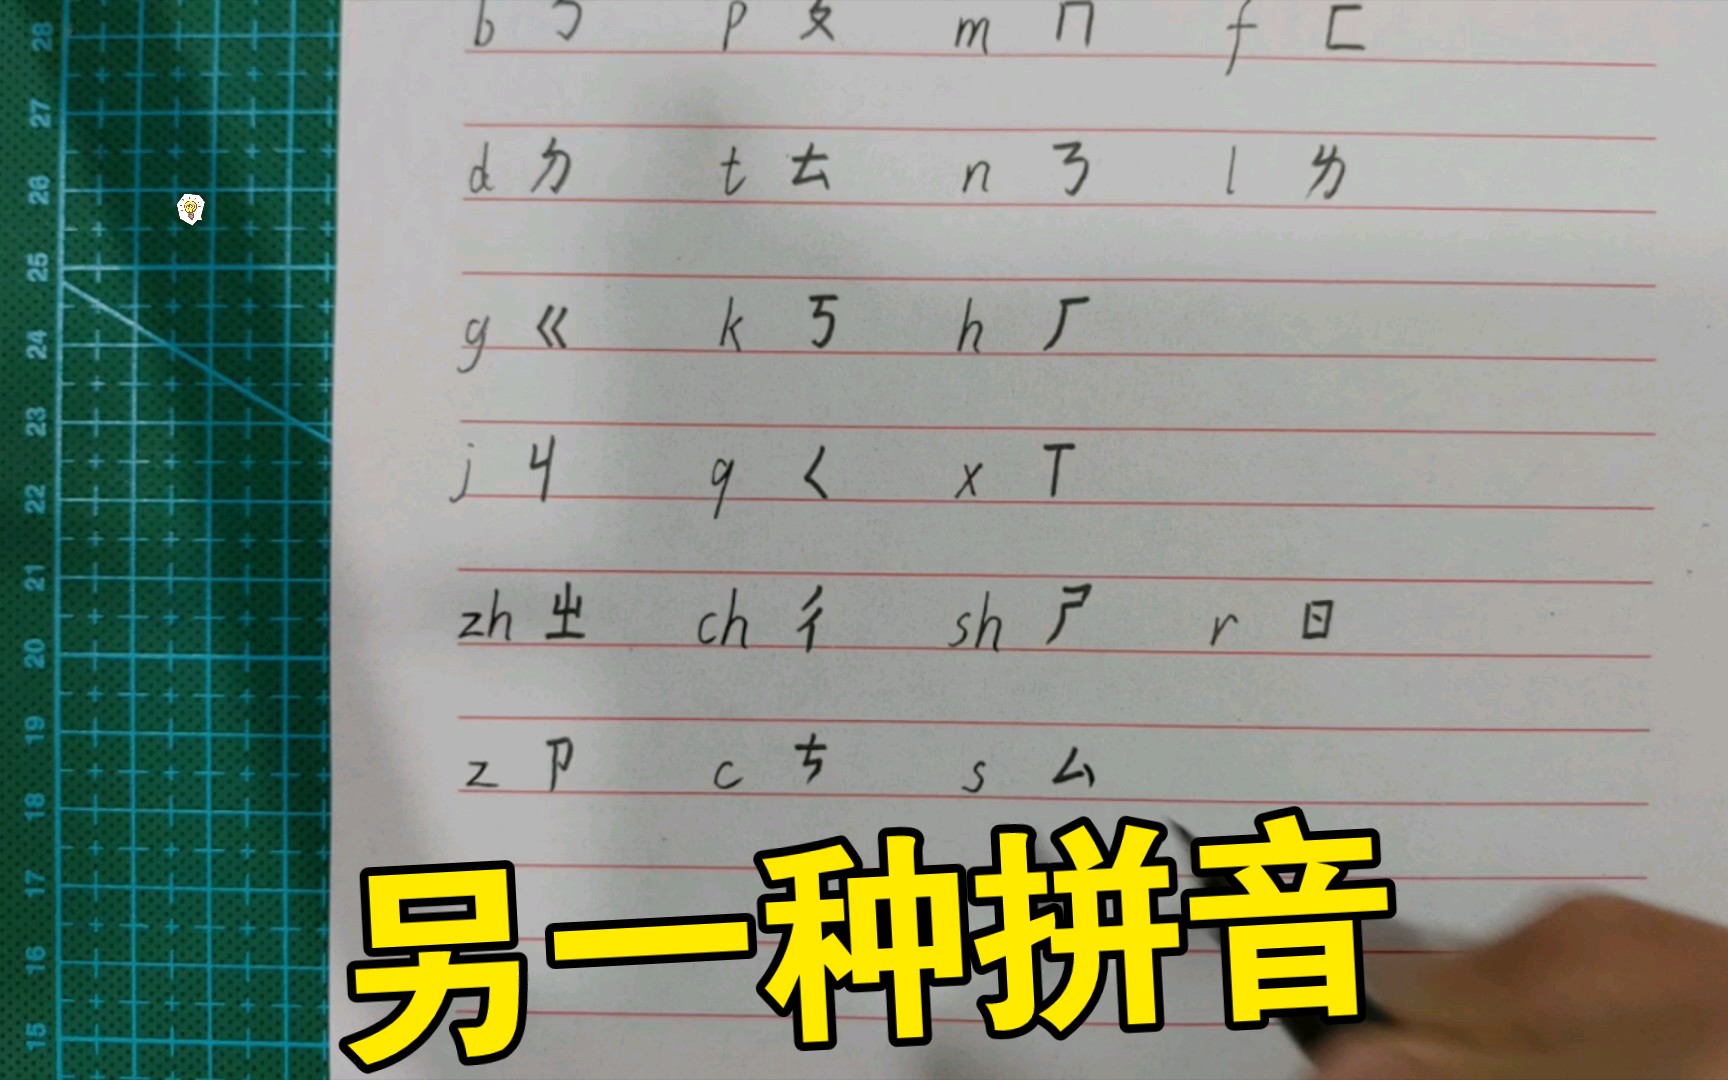 b ㄅ p ㄆ m ㄇ f ㄈ
d ㄉ t ㄊ n ㄋ l ㄌ
g ㄍ k ㄎ h ㄏ
j ㄐ q ㄑ x ㄒ
zh ㄓ ch ㄔ sh ㄕ r ㄖ
z ㄗ c ㄘ s ㄙ
另一种拼音
28
27
26
25
24
23
22
21
20
19
18
17
16
15